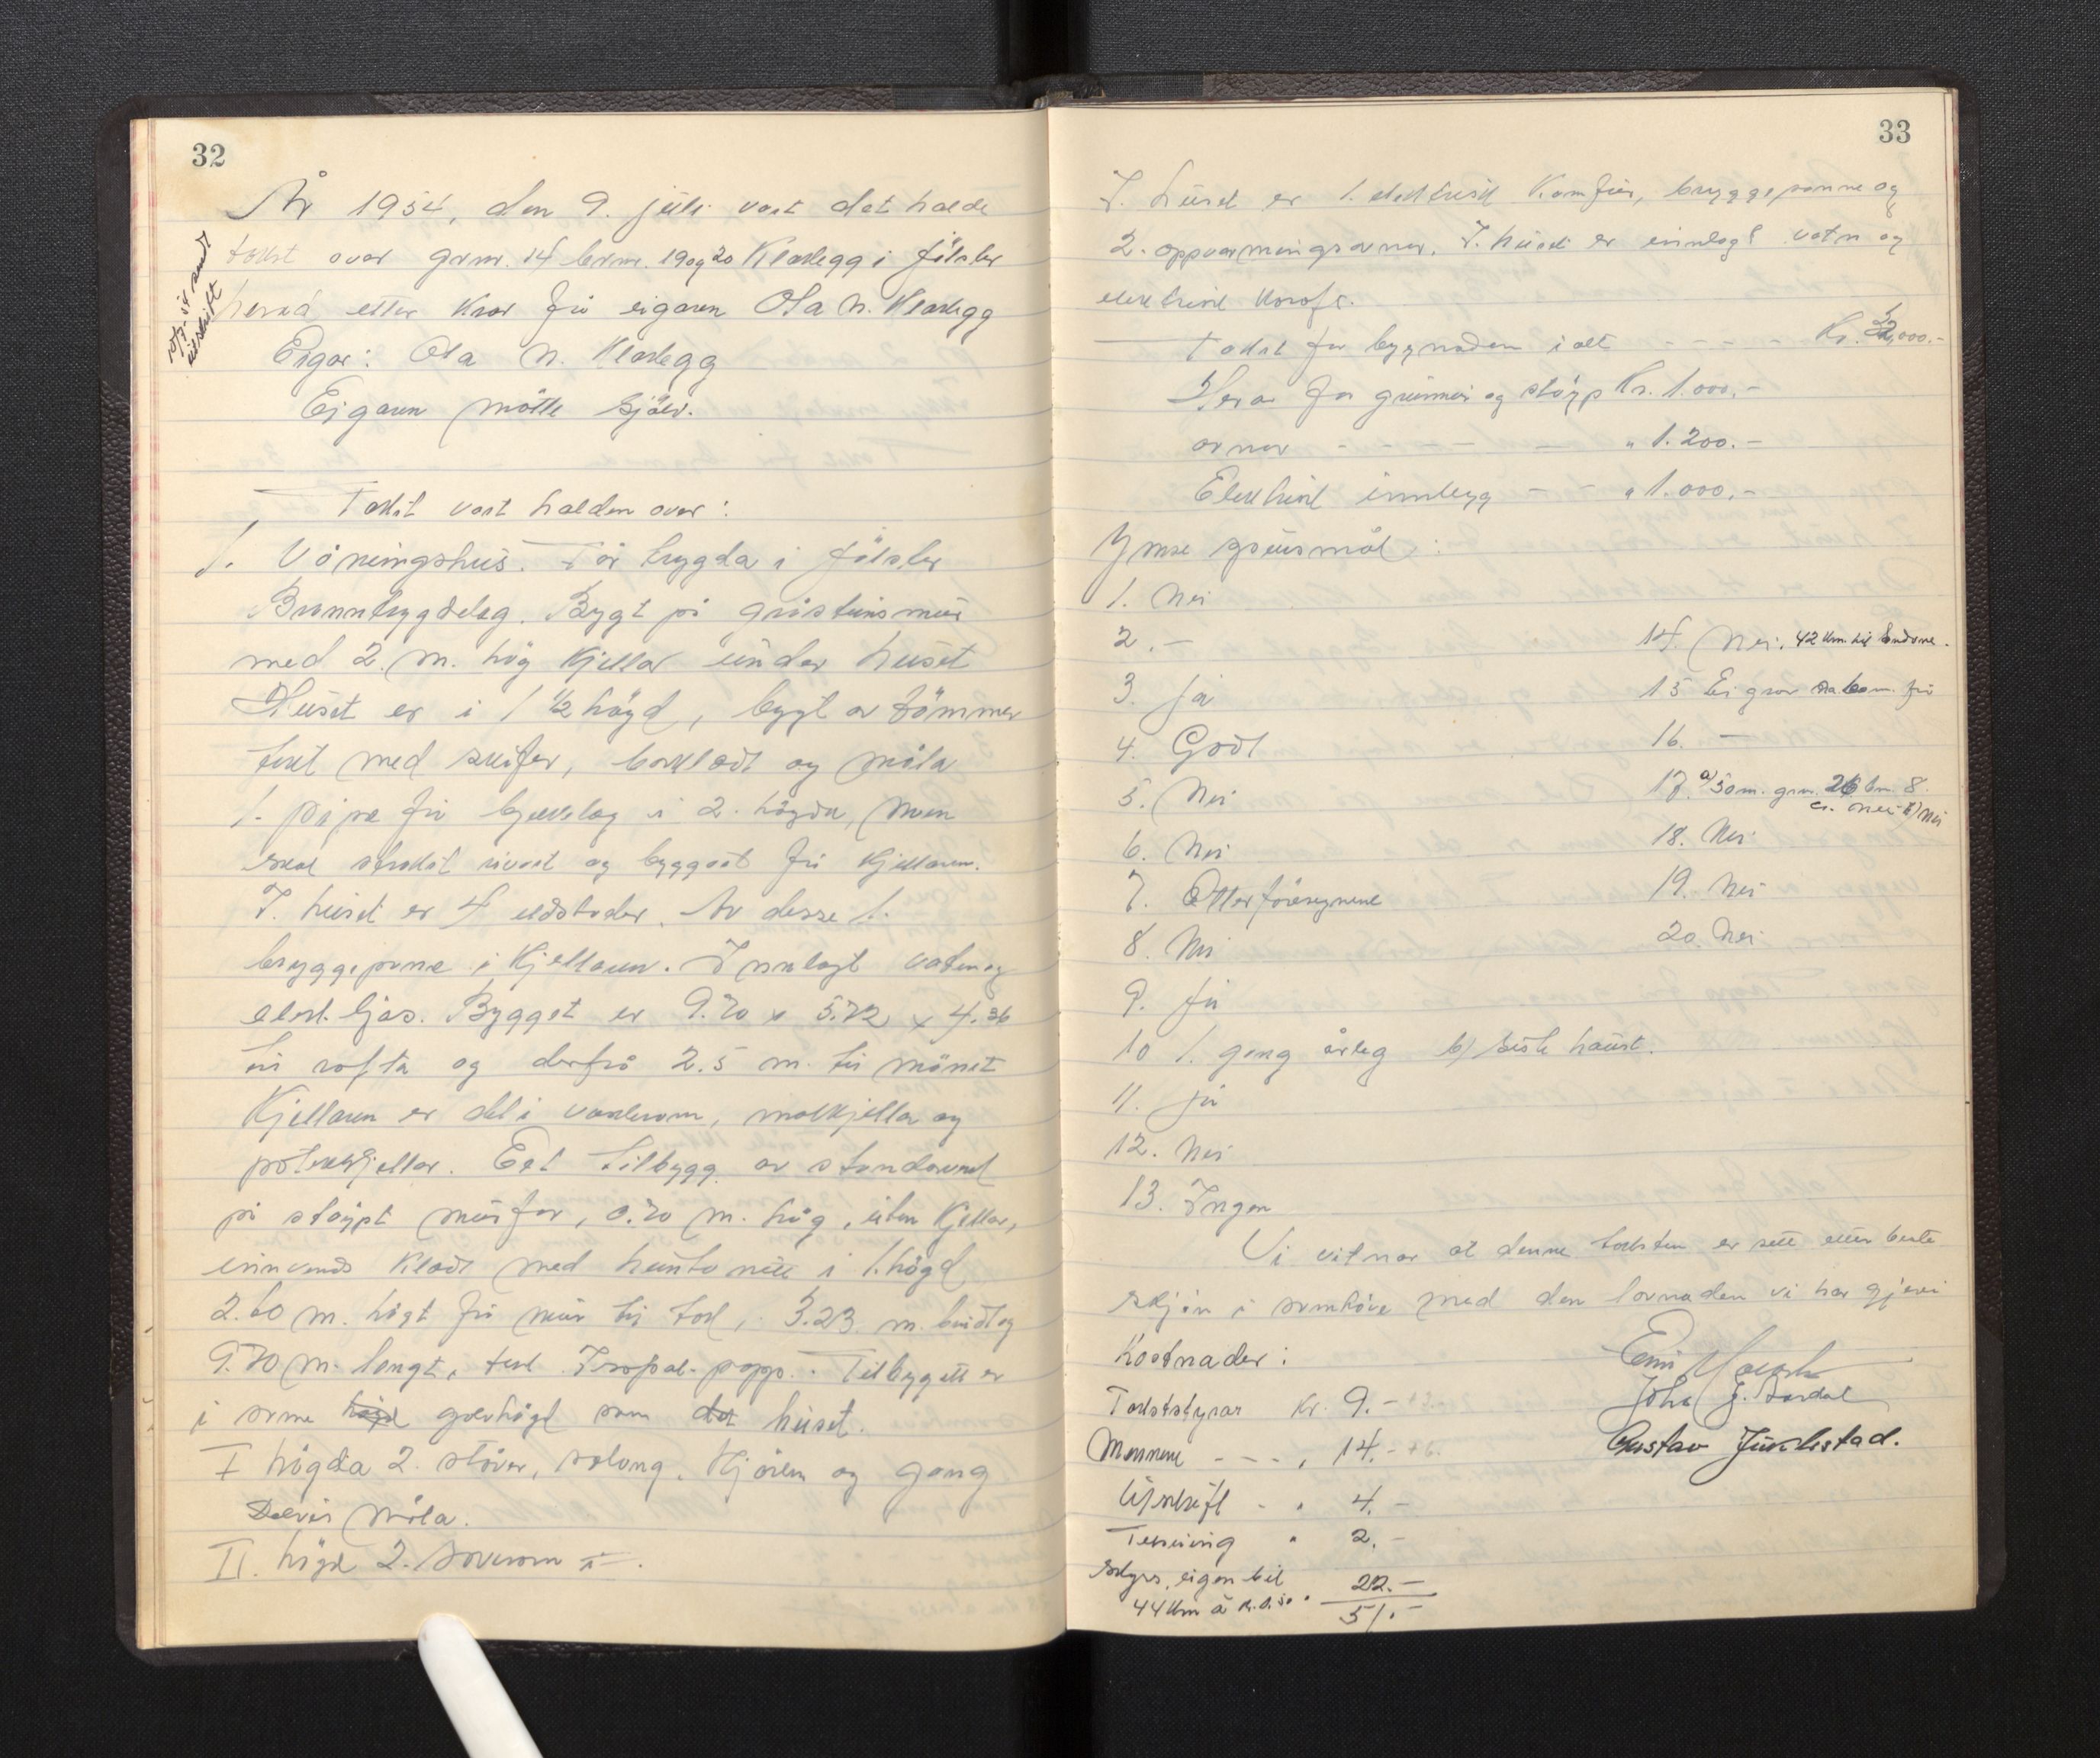 32
År 1954, den 9. juli vart det halde
takst over grnr. 14 brnr. 19 og 20 Klakegg i Jølster
herad etter krav frå eigaren Ola N. Klakegg
10/7-54 sendt utskrift
Eigar: Ola N. Klakegg
Eigaren møtte sjølv.
Takst vart halden over:
1. Våningshus. Før trygda i Jølster
Branntrygdelag. Bygt på gråsteinsmur
med 2. m. høg kjellar under huset
Huset er i 1 1/2 høgd, bygt av tømmer
tekt med skifer, bordkledt og måla
1. pipe frå bjelkelag i 2. høgda, men
skal straks rivast og byggast frå kjellaren.
I. huset er 4 eldstader. Av desse 1.
bryggepanne i kjellaren. Innlagt vatn og
elekt. ljos. Bygget er 9.70 x 5.72 x 4.36
til rafta og derfrå 2.5 m. til mønet
Kjellaren er delt i vaskerom, matkjellar og
potetkjellar. Eet tilbygg av standarverk
på støypt mur før, 0.70 m. høg, uten kjellar,
innvendig kledt med huntonitt i 1. høgd
2.60 m. høgt frå mur til tak, 3.23. m. breidt og
9.70 m. langt, tekt Isopal-papp. Tilbygget er
i same høgd golvhøgd som det huset.
I høgda 2. stover, salong, kjøken og gang
Delvis måla.
II. høgd 2. soverom
33
I. huset er 1. elektrisk komfyr, bryggepanne og
2. oppvarmingsovner. I. huset er innlagt vatn og
elektrisk kraft.
Takst for bygnaden i alt - - - - Kr. 32,000.-
Herav for grunnmur og støyp Kr. 1.000.-
ovner - - - - - " 1.200.-
Elektrisk innlegg - - " 1.000.-
Ymse spursmål:
1. Nei
2. -
3. Ja
4. Godt
5. Nei
6. Nei
7. Etter føresegnene
8. Nei
9. Ja
10 1. gong årleg b) siste haust.
11. Ja
12. Nei
13. Ingen
14. Nei. 42 km. til
15 Ei grov
16. -
17. a) Som. gnr. 26 bn. 8.
c. nei b) Nei
18. Nei
19. Nei
20. Nei
Vi vitnar at denne taksten er sett etter beste
skjøn i samhøve med den lovnaden vi har gjeve
Kostnader:
Takststyrar Kr. 9.-
Mennene - - - " 14.-
Utskrift - " 4.-
Teikning " 2.-
Skyss, eigen bil
44 km à kr. 0.50 " 22.-
51.-
Johs J. Årdal
Gustav Juklestad.